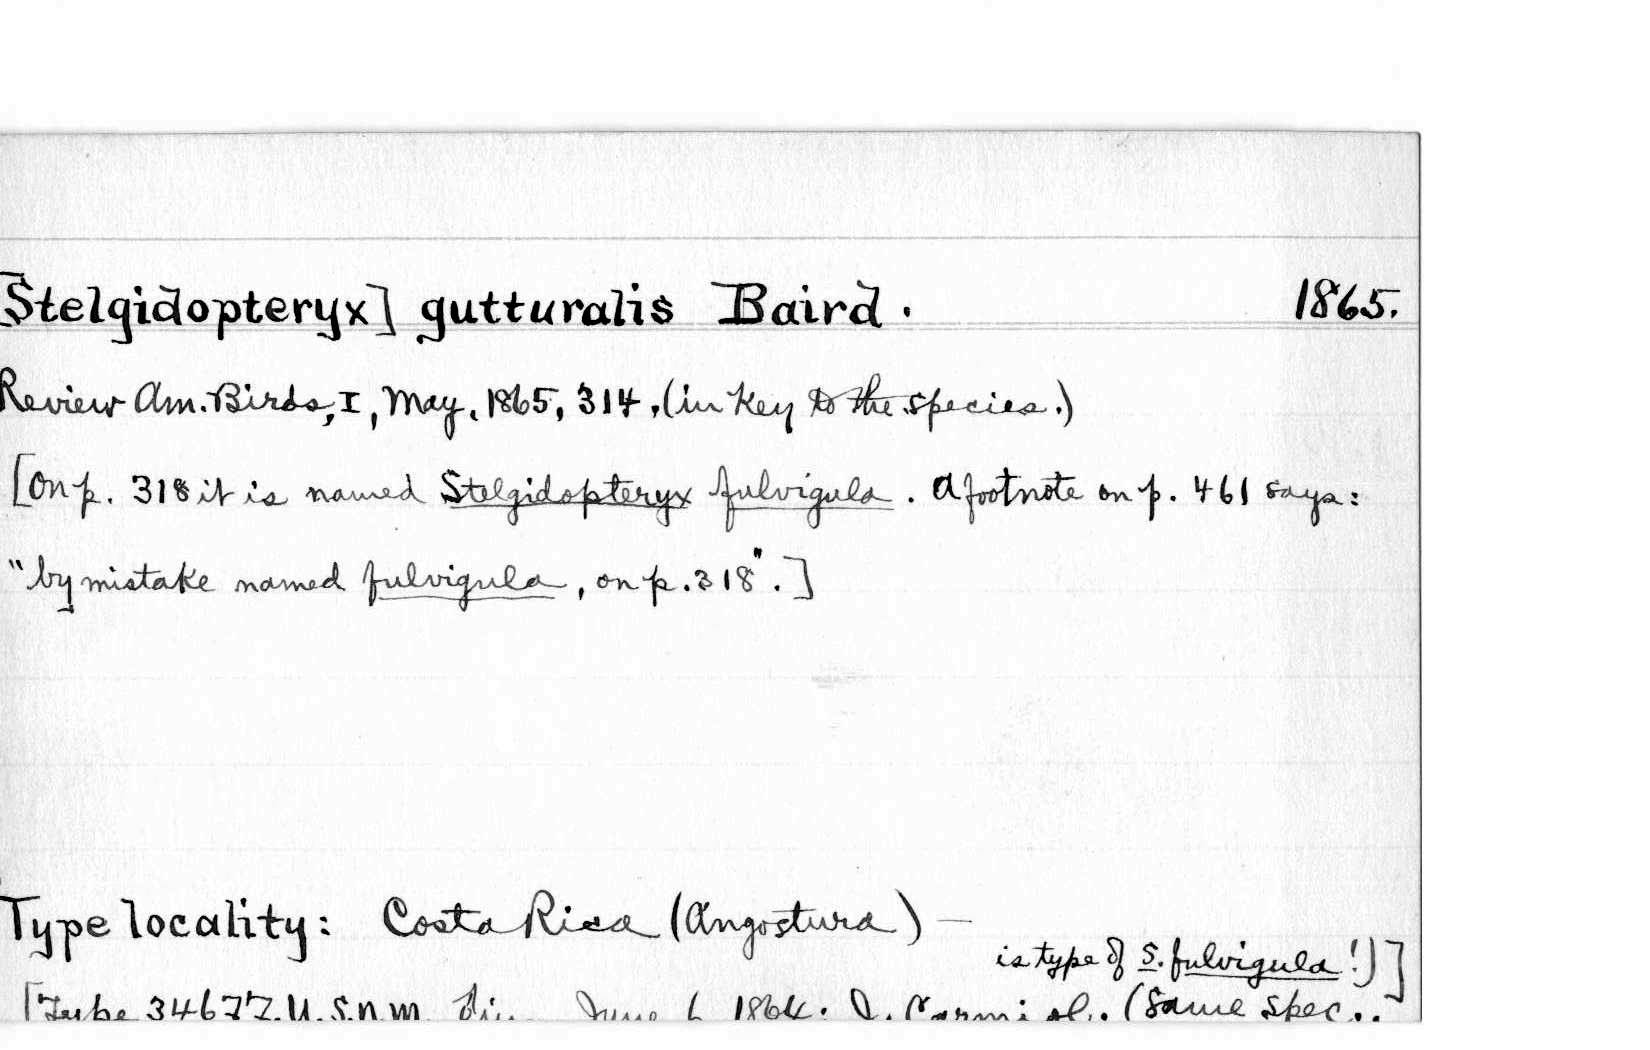 [Stelgidopteryx] gutturalis Baird. 1865.
Review Am. Birds, I, May, 1865, 314, (in Key to the species.)
[On p. 318 it is named Stelgidopteryx fulvigula. A footnote on p. 461 says:
"by mistake named fulvigula, on p. 318".]
Type locality: Costa Rica (Angostura) —
is type of S. fulvigula!)]
[Type 34677. U.S.N.M. June 6 1864. J. Carmiol. (Same spec.